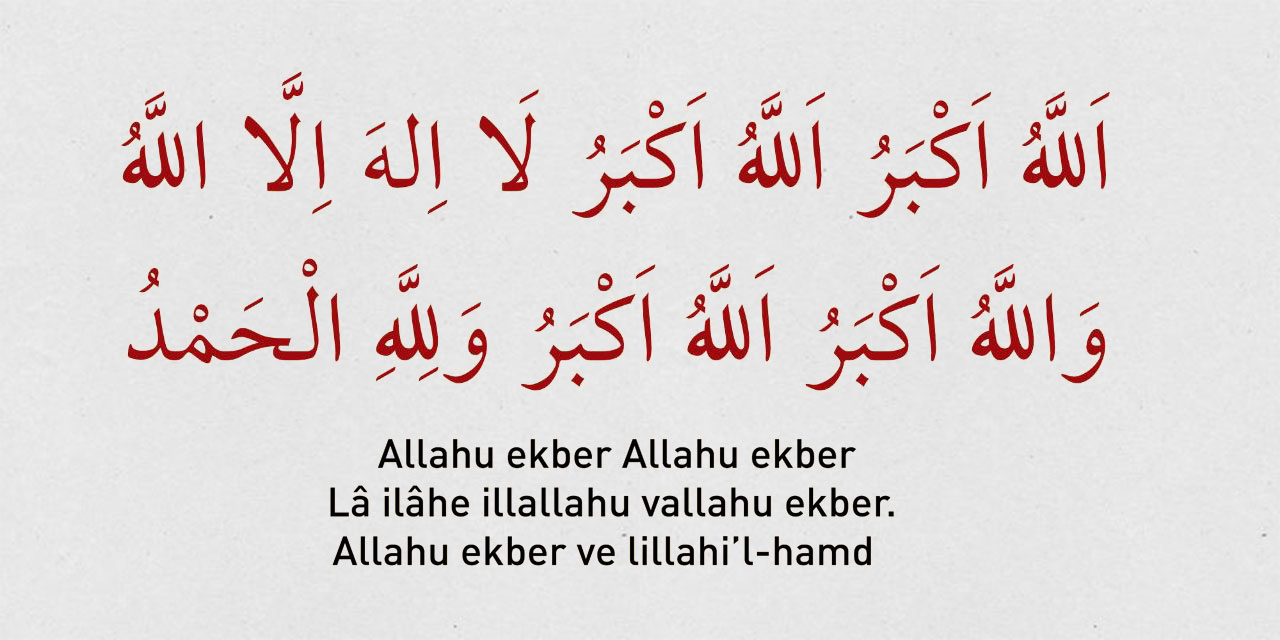 اَللّٰهُ اَكْبَرُ اَللّٰهُ اَكْبَرُ لَا اِلهَ اِلَّا اللّٰهُ
وَاللّٰهُ اَكْبَرُ اَللّٰهُ اَكْبَرُ وَلِلّٰهِ الْحَمْدُ
Allahu ekber Allahu ekber
Lâ ilâhe illallahu vallahu ekber.
Allahu ekber ve lillahi’l-hamd